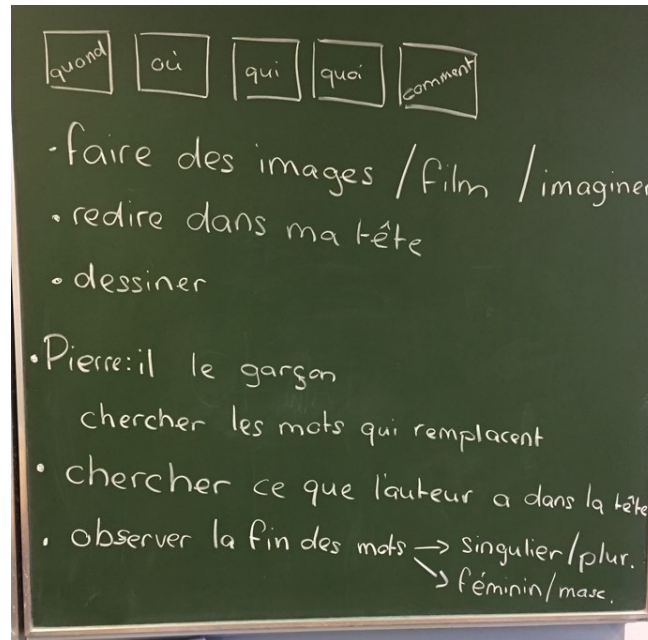 quand où qui quoi comment
• faire des images / film / imaginer
• redire dans ma tête
• dessiner
• Pierre: il le garçon
chercher les mots qui remplacent
• chercher ce que l'auteur a dans la tête
• observer la fin des mots → singulier/plur.
↘ féminin/masc.